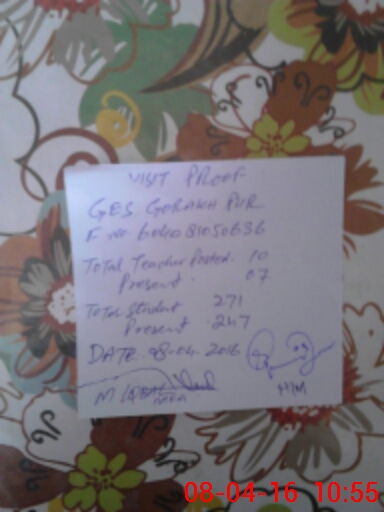 VISIT PROOF
GES GORAKH PUR
E no 604081050636
Total Teacher Posted. 10
Present. 07
Total Student 271
Present 247
DATE. 08-04-2016
M IQBAL
H/M
08-04-16 10:55